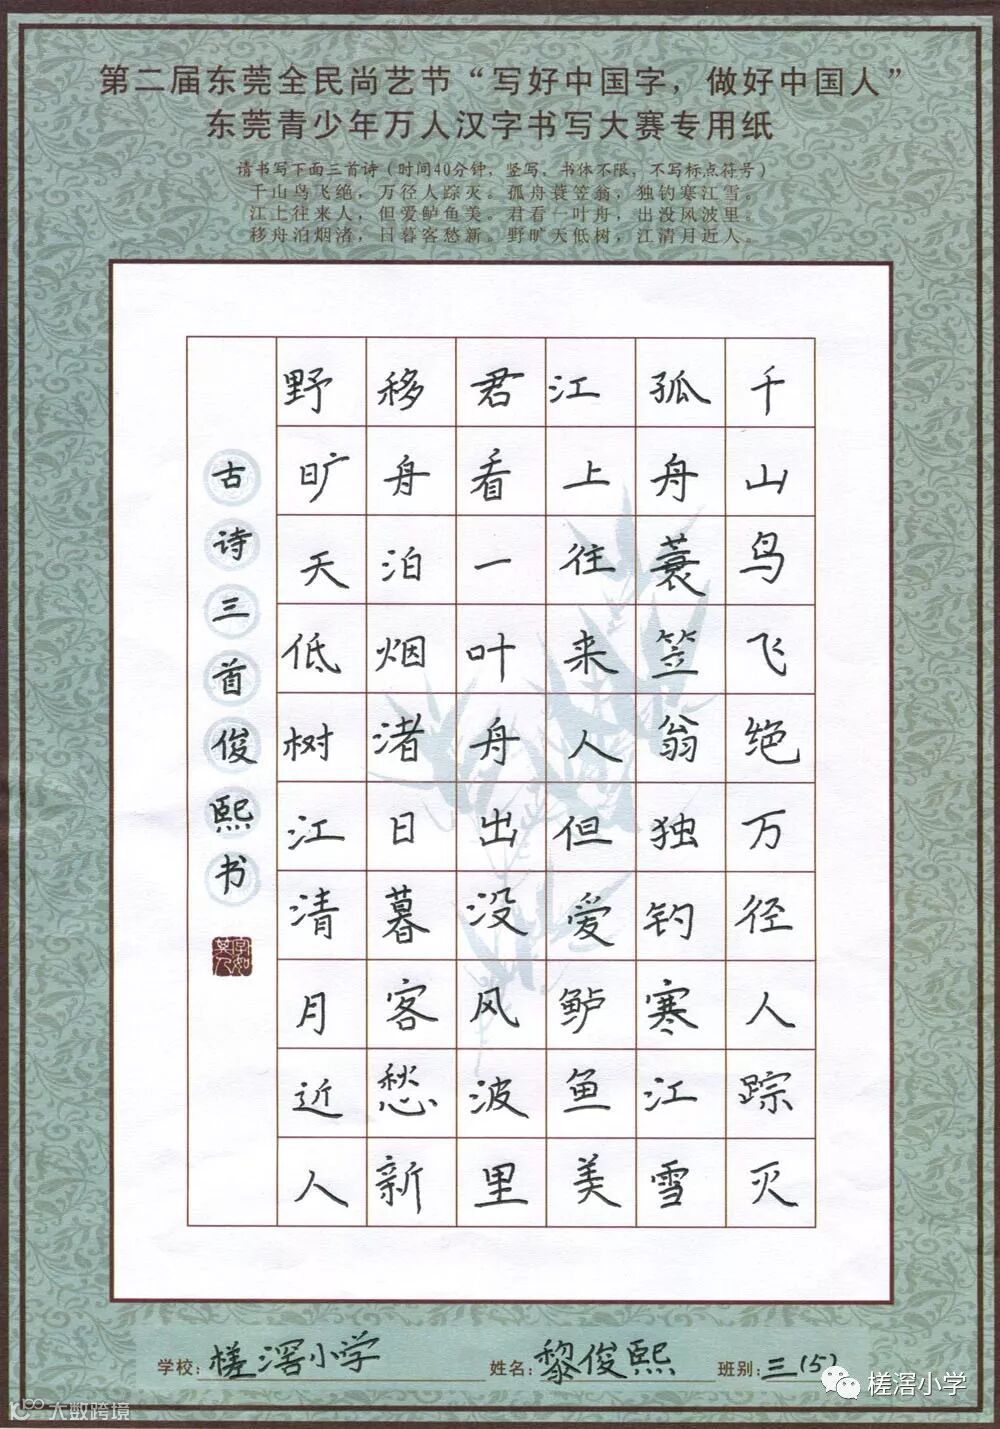 第二届东莞全民尚艺节“写好中国字，做好中国人”
东莞青少年万人汉字书写大赛专用纸
请书写下面三首诗（时间40分钟，竖写，书体不限，不写标点符号）
千山鸟飞绝，万径人踪灭。孤舟蓑笠翁，独钓寒江雪。
江上往来人，但爱鲈鱼美。君看一叶舟，出没风波里。
移舟泊烟渚，日暮客愁新。野旷天低树，江清月近人。
千山鸟飞绝万径人踪灭
孤舟蓑笠翁独钓寒江雪
江上往来人但爱鲈鱼美
君看一叶舟出没风波里
移舟泊烟渚日暮客愁新
野旷天低树江清月近人
古诗三首俊熙书
学校：槎滘小学 姓名：黎俊熙 班别：三(5)
槎滘小学
大数跨境